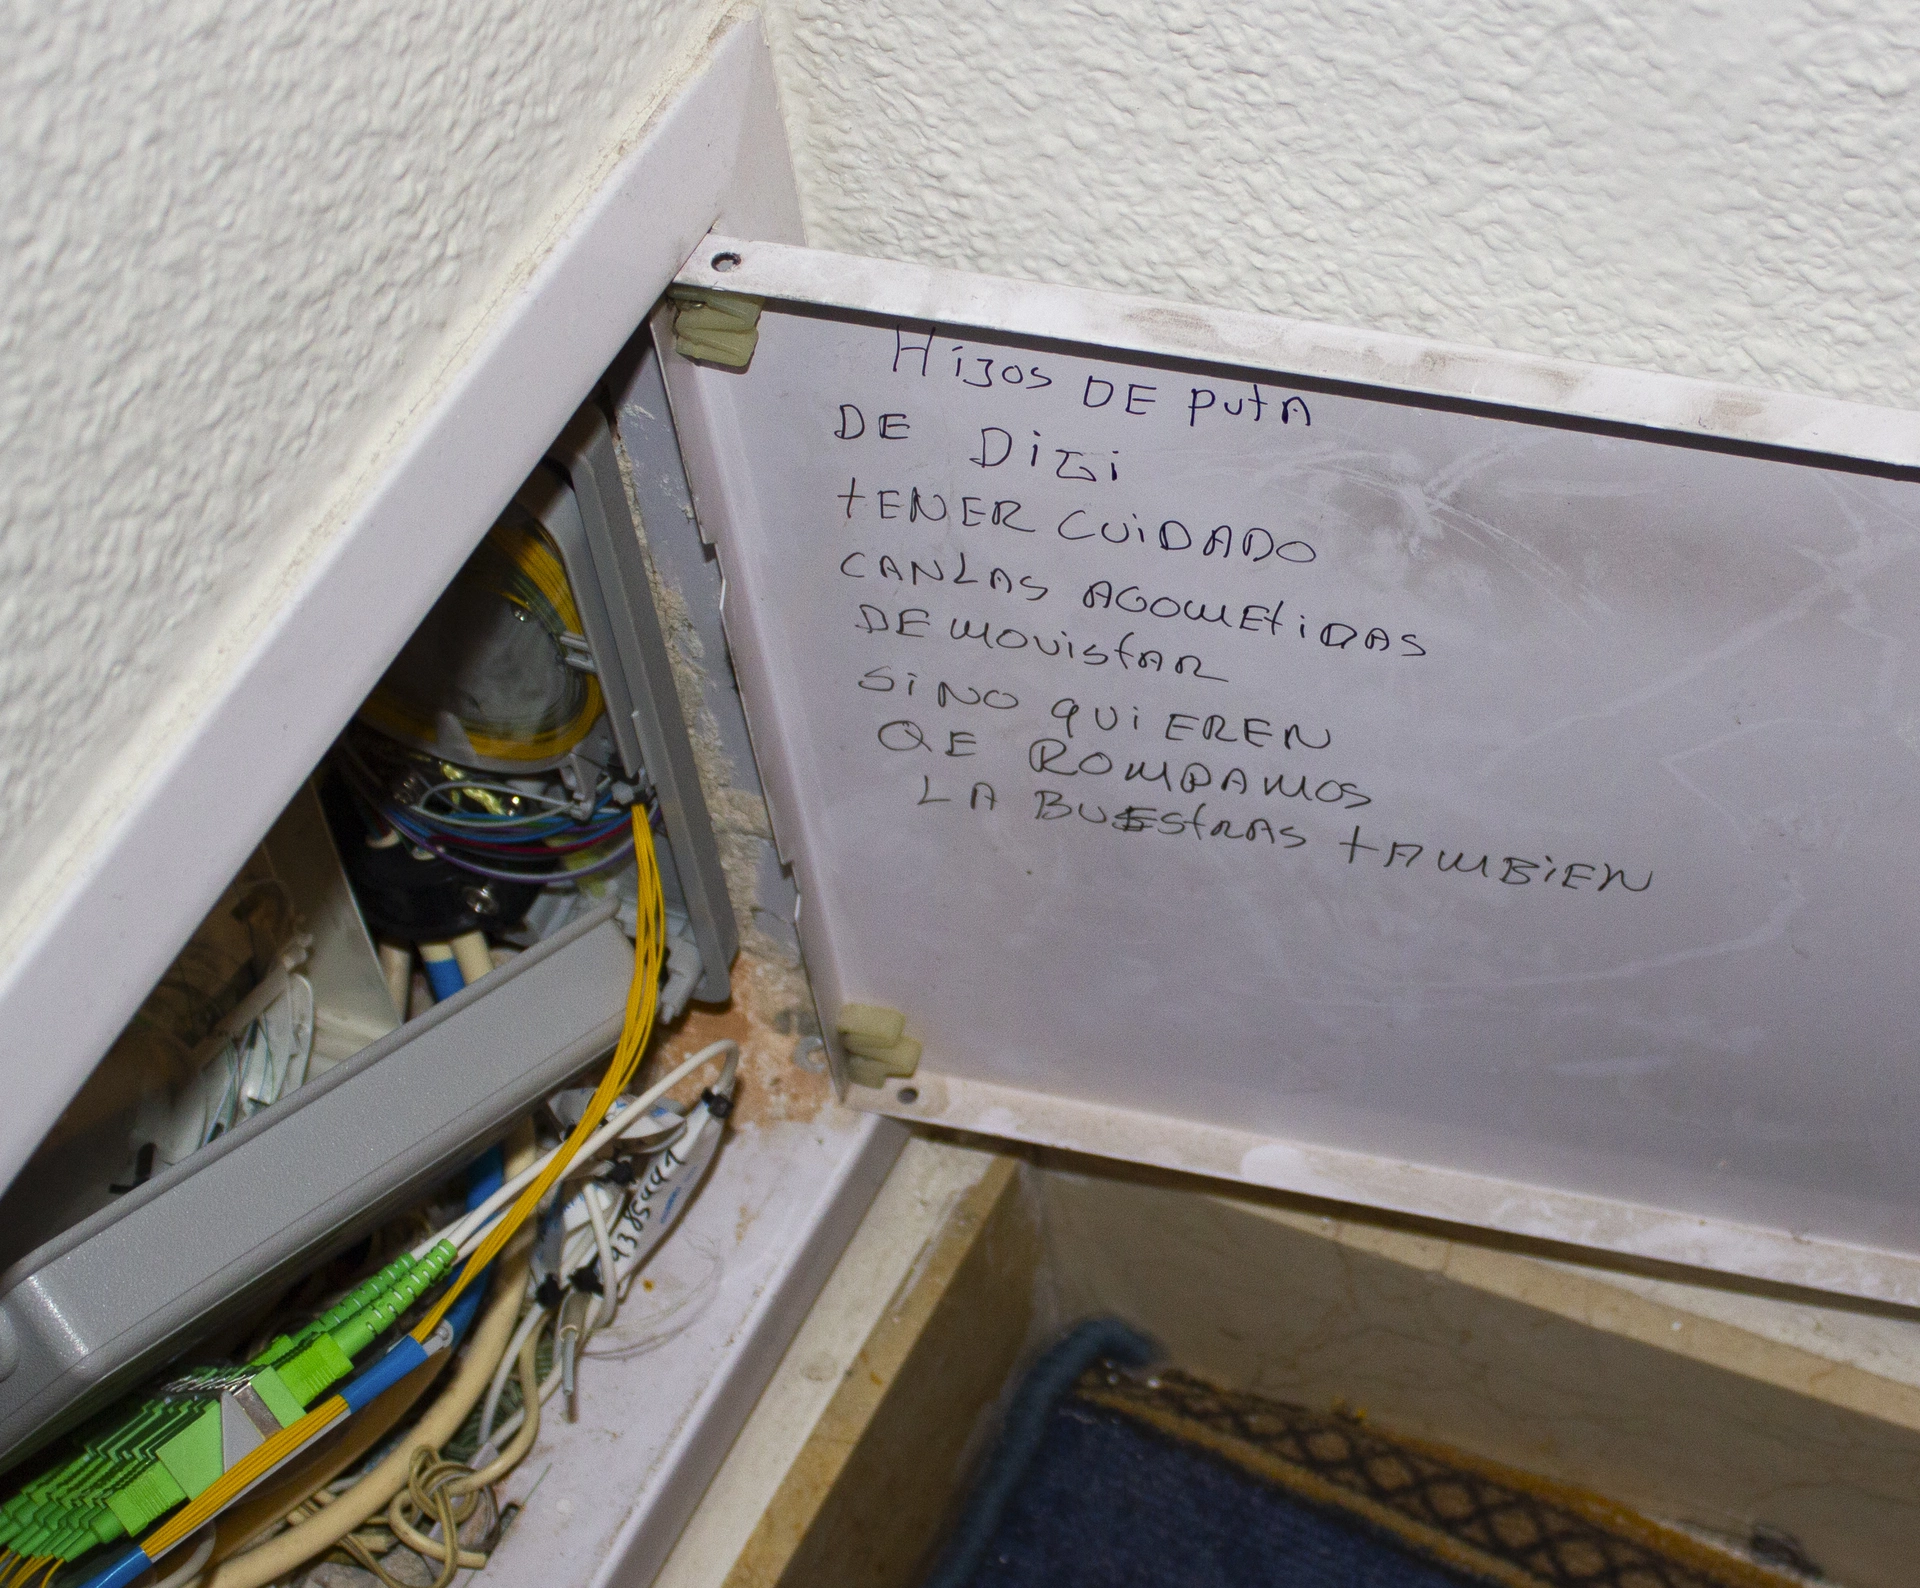 HiJos DE putA
DE DiGi
tENER CUiDADO
CANLAS AGOMEtiDAS
DE MOVistAR
Si NO qUiEREN
QE ROMPAMOS
LA BUEStRAS tAMBiEN
9385449